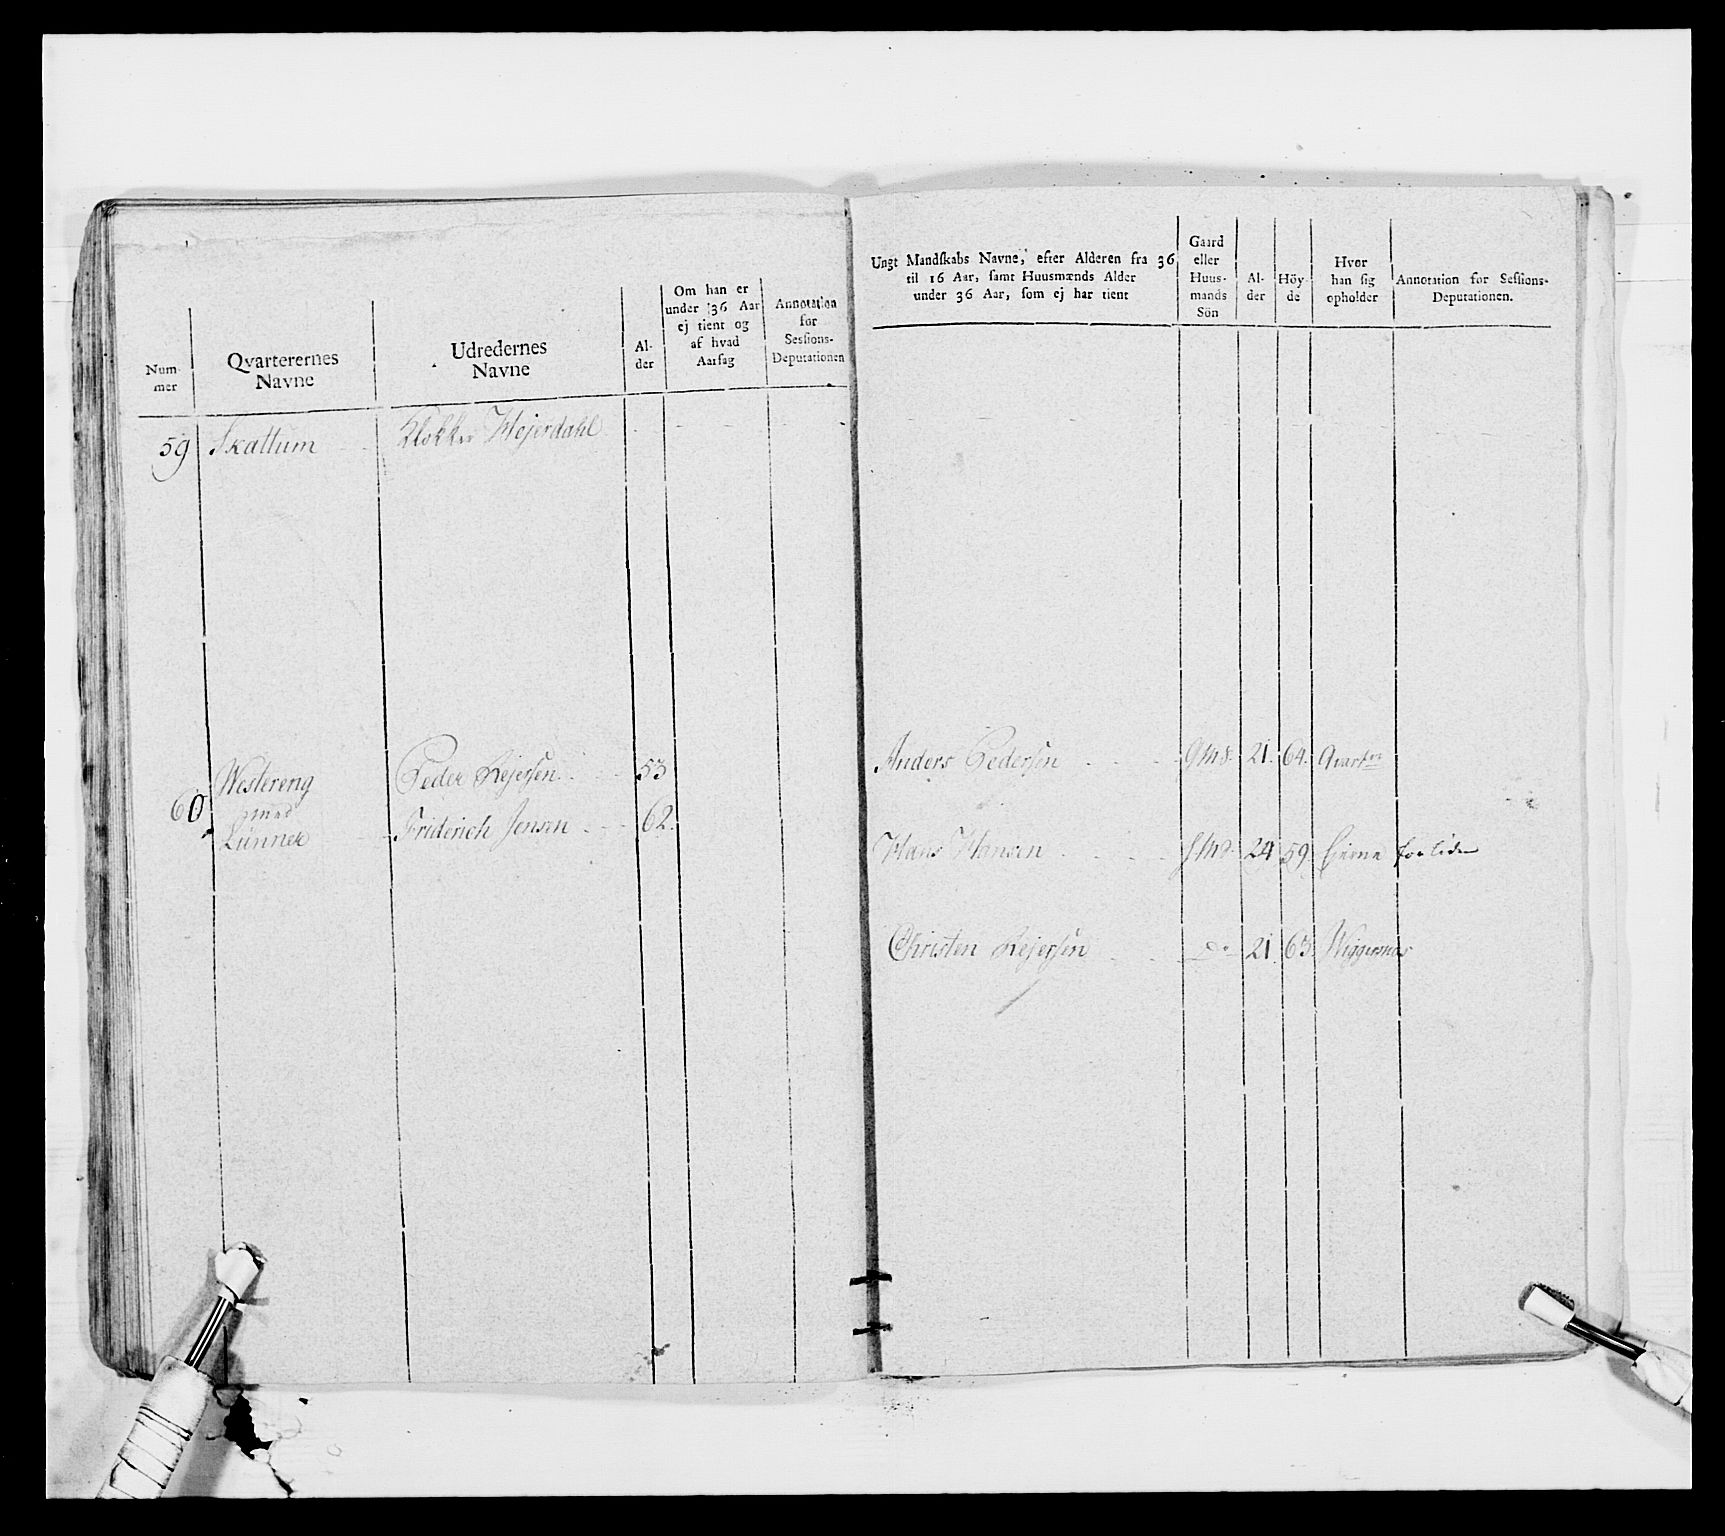 Num-
mer
Qvarterernes
Navne
Udredernes
Navne
Al-
der
Om han er
under 36 Aar
ej tient og
af hvad
Aarsag
Annotation
for
Sessions-
Deputationen
59 Skattum Klokker Hejerdahl
60
Westereng Peder Rejersen 53
med
Lünner Friderich Jensen 62.
Ungt Mandskabs Navne, efter Alderen fra 36
til 16 Aar, samt Huusmænds Alder
under 36 Aar, som ej har tient
Gaard
eller
Huus-
mands
Sön
Al-
der
Höy-
de
Hvor
han sig
opholder
Annotation for Sessions-
Deputationen.
Anders Pedersen 21. 64.
Hans Hansen 24 59
Christen Rejersen Do 21. 63